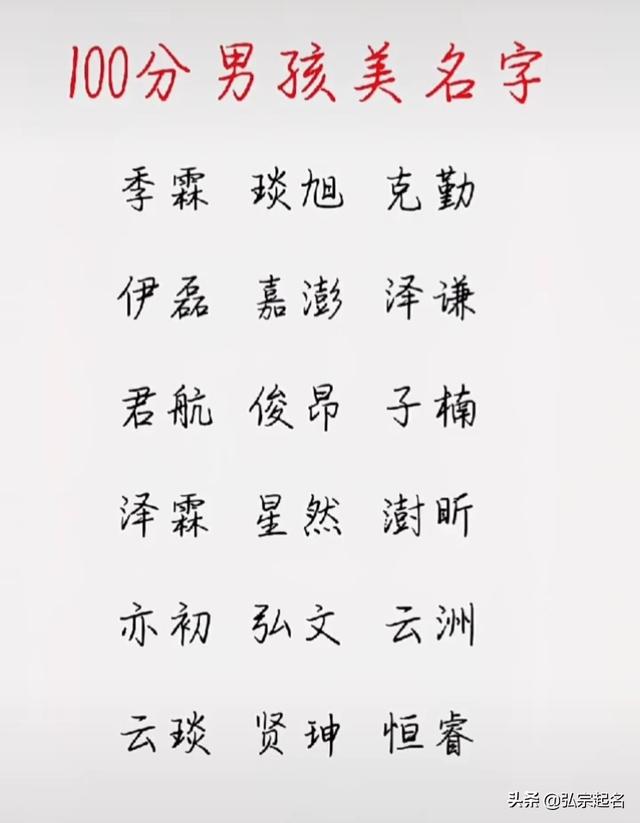 100分男孩美名字
季霖 琰旭 克勤
伊磊 嘉澎 泽谦
君航 俊昂 子楠
泽霖 星然 澍昕
亦初 弘文 云洲
云琰 贤珅 恒睿
头条 @弘宗起名